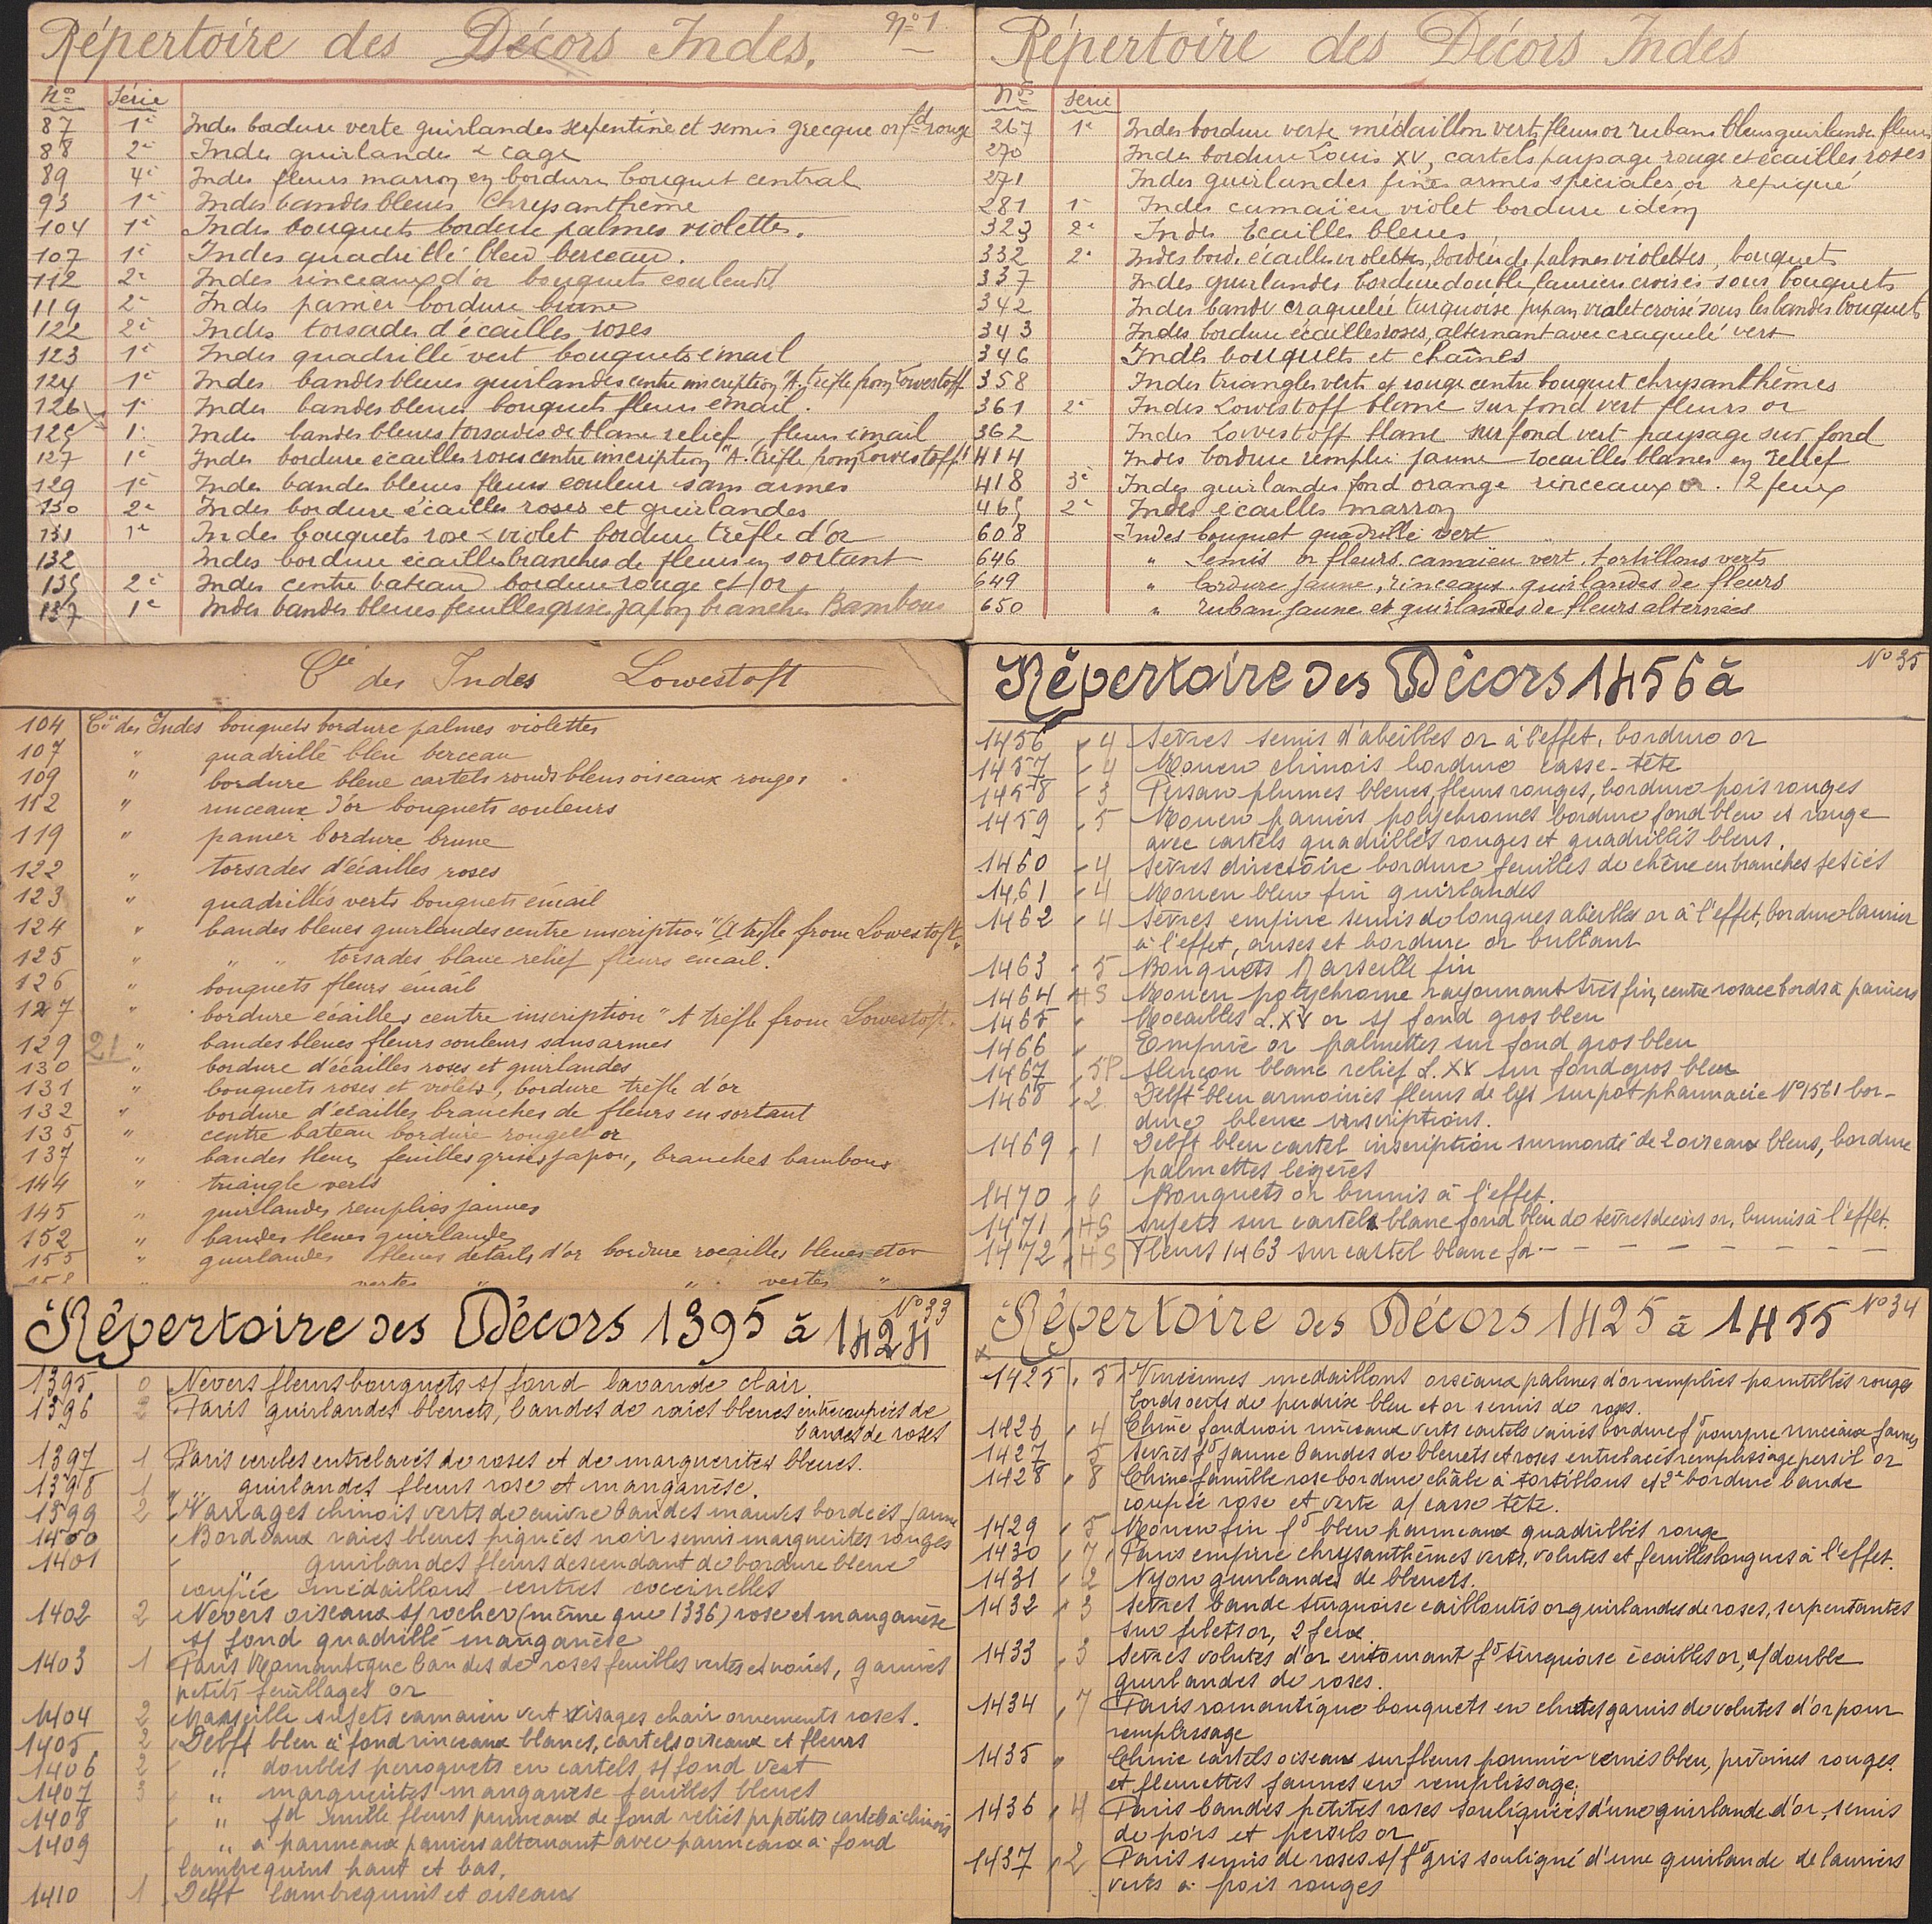 Répertoire des Décors Indes. No 1
No Série
87 1e Indes bordure verte guirlandes serpentine et semis grecque or fd rouge
88 2e Indes guirlandes & cage
89 4e Indes fleurs marron en bordure bouquet central
93 1e Indes bandes bleues Chrysanthème
104 1e Indes bouquets bordure palmes violettes.
107 1e Indes quadrillé bleu berceau.
112 2e Indes rinceaux d'or bouquets couleurs
119 2e Indes panier bordure brune
122 2e Indes torsades d'écailles roses
123 1e Indes quadrillé vert bouquets émail
124 1e Indes bandes bleues guirlandes centre inscription "A trifle from Lowestoff
126 1e Indes bandes bleues bouquets fleurs émail.
125 1e Indes bandes bleues torsades de blanc relief fleurs émail
127 1e Indes bordure écailles roses centre inscription "A. trifle from Lowestoff"
129 1e Indes bandes bleues fleurs couleur sans armes
130 2e Indes bordure écailles roses et guirlandes
131 1e Indes bouquets rose & violet bordure trèfle d'or
132 Indes bordure écailles branches de fleurs en sortant
135 2e Indes centre bateau bordure rouge et or
137 1e Indes bandes bleues feuilles grises japon branches Bambous
Répertoire des Décors Indes
Nos Serie
267 1e Indes bordure verte médaillon verts fleurs or rubans bleus guirlandes fleurs
270 Indes bordure Louis XV, cartels paysage rouge et écailles roses
271 Indes guirlandes fines armes spéciales or repiqué
281 1e Indes camaïeu violet bordure idem
323 2e Indes Ecailles bleues
332 2e Indes bord. écailles violettes, bordées de palmes violettes, bouquets
337 Indes guirlandes bordure double lauriers croisés sous bouquets
342 Indes bande craquelée turquoise ruban violet croisé sous les bandes bouquets
343 Indes bordure écailles roses, alternant avec craquelé vert
346 Indes bouquets et chaînes
358 Indes triangles verts et rouge centre bouquet chrysanthèmes
361 2e Indes Lowestoff blanc sur fond vert fleurs or
362 Indes Lowestoff blanc sur fond vert paysage sur fond
414 Indes bordure remplie jaune rocailles blanc en relief
418 3e Indes guirlandes fond orange rinceaux or. 2 feux
465 2e Indes écailles marron
608 Indes bouquet quadrillé vert
646 " Semis or fleurs camaïeu vert, tortillons verts
649 " bordure jaune, rinceaux guirlandes de fleurs
650 " ruban jaune et guirlandes de fleurs alternées
Cie des Indes Lowestoft
104 Cie des Indes bouquets bordure palmes violettes
107 " quadrillé bleu berceau
109 " bordure bleue cartels ronds bleus oiseaux rouges
112 " rinceaux d'or bouquets couleurs
119 " panier bordure brune
122 " torsades d'écailles roses
123 " quadrillés verts bouquets émail
124 " bandes bleues guirlandes centre inscription "A trifle from Lowestoft"
125 " " " torsades blanc relief fleurs émail.
126 " bouquets fleurs émail
127 " bordure écailles centre inscription "A trifle from Lowestoft.
129 21 " bandes bleues fleurs couleurs sans armes
130 " bordure d'écailles roses et guirlandes
131 " bouquets roses et violets, bordure trèfle d'or
132 " bordure d'écailles branches de fleurs en sortant
135 " centre bateau bordure rouge et or
137 " bandes bleues feuilles grises japon, branches bambous
144 " triangle verts
145 " guirlandes remplies jaunes
152 " bandes bleues guirlandes
155 " guirlandes bleues détails d'or bordure rocailles bleues et or
158 " vertes " " vertes "
Répertoire des Décors 1456 à No 35
1456 4 Sèvres semis d'abeilles or à l'effet, bordure or
1457 4 Rouen chinois bordure casse-tête
1458 3 Persan plumes bleues, fleurs rouges, bordure pois rouges
1459 5 Rouen paniers polychromes bordure fond bleu et rouge
avec cartels quadrillés rouges et quadrillés bleus.
1460 4 Sèvres directoire bordure feuilles de chêne en branches
1461 4 Rouen bleu fin guirlandes
1462 4 Sèvres empire semis de longues abeilles or à l'effet, bordure laurier
à l'effet, anses et bordure or brillant
1463 5 Bouquets Marseille fin
1464 HS Rouen polychrome rayonnant très fin, centre rosace bords à paniers
1465 " Rocailles L. XV or s/ fond gros bleu
1466 " Empire or palmettes sur fond gros bleu
1467 5P Alençon blanc relief L. XV sur fond gros bleu
1468 2 Delft bleu armoiries fleurs de lys sur pot pharmacie No 1561 bor-
dure bleue inscriptions.
1469 1 Delft bleu cartel inscription surmonté de 2 oiseaux bleus, bordure
palmettes légères
1470 6 Bouquets or brunis à l'effet.
1471 HS Sujets sur cartels blanc fond bleu de sèvres décors or, brunis à l'effet.
1472 HS Fleurs 1463 sur cartel blanc fd - - - - - - - -
Répertoire des Décors 1395 à 1424 No 33
1395 0 Nevers fleurs bouquets s/ fond lavande clair.
1396 2 Paris guirlandes bleuets, bandes de raies bleues entrecoupées de
bandes de roses
1397 1 Paris cercles entrelacés de roses et de marguerites bleues.
1398 1 " " guirlandes fleurs rose et manganèse.
1399 2 Varrages chinois verts de cuivre bandes mauves bordées jaune
1400 Bordeaux raies bleues piquées noir semis marguerites rouges
1401 " guirlandes fleurs descendant de bordure bleue
coupée médaillons centres coccinelles
1402 2 Nevers oiseaux s/ rocher (même que 1336) rose et manganèse
s/ fond quadrillé manganèse
1403 1 Paris Romantique bandes de roses feuilles vertes et noires, garnies
petits feuillages or
1404 2 Marseille sujets camaieu vert visages chair ornements roses.
1405 2 Delft bleu à fond rinceaux blancs, cartels oiseaux et fleurs
1406 2 " doubles perroquets en cartels s/ fond vert
1407 3 " marguerites manganèse feuilles bleues
1408 " fd mille fleurs panneaux de fond reliés pr petits cartels à chinois
1409 " à panneaux paniers alternant avec panneaux à fond
lambrequins haut et bas.
1410 1 Delft lambrequins et oiseaux
Répertoire des Décors 1425 à 1455 No 34
1425 5 Vincennes medaillons oiseaux palmes d'or remplies pointillés rouges
bords oeils de perdrix bleu et or semis de roses.
1426 4 Chine fond noir rinceaux verts cartels variés bordure fd pourpre rinceaux jaunes
1427 5 Sèvres fd jaune bandes de bleuets et roses entrelacés remplissage persil or
1428 8 Chine famille rose bordure châle à tortillons et 2e bordure bande
coupée rose et verte a/ casse tête.
1429 5 Rouen fin fd bleu panneaux quadrillés rouge
1430 7 Paris empire chrysanthèmes verts, volutes et feuilles longues à l'effet.
1431 2 Nyon guirlandes de bleuets.
1432 3 Sèvres bande turquoise cailloutis or guirlandes de roses, serpentantes
sur filets or, 2 feux.
1433 3 Sèvres volutes d'or entourant fd turquoise écailles or, a/ double
guirlandes de roses.
1434 7 Paris romantique bouquets en chutes garnis de volutes d'or pour
remplissage
1435 " Chine cartels oiseaux sur fleurs pommier semis bleu, pivoines rouges
et fleurettes jaunes en remplissage.
1436 4 Paris bandes petites roses soulignées d'une guirlande d'or, semis
de pois et persils or
1437 2 Paris semis de roses s/ fd gris souligné d'une guirlande de lauriers
verts à pois rouges